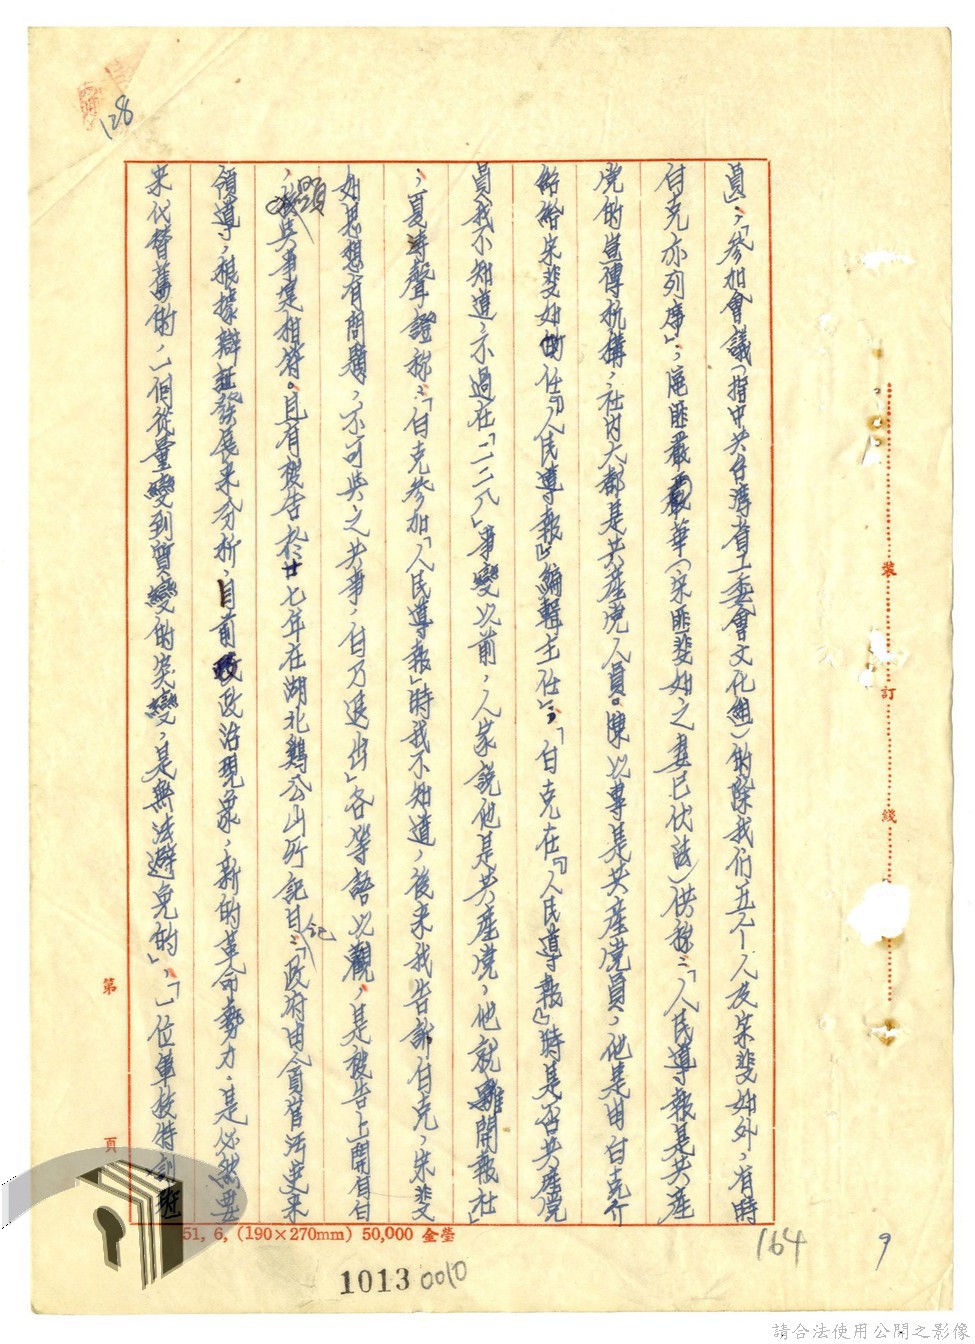 128
員」,「參加會議(指中共台灣省工委會文化組)的除我们五个人及宋斐如外,有時
白克亦列席」,區匪嚴華(宋匪斐如之妻已伏法)供称:「人民導報是共產
党的宣傳机構,社内大都是共產党人員。陳以尊是共產党員,他是由白克介
紹給宋斐如的任『人民導報』編輯主任」;「白克在『人民導報』時是否共產党
員我不知道,不過在「二二八」事變以前,人家說他是共產党,他就離開報社」
,夏濤聲證称:「白克參加「人民導報」時我不知道,後来我告訴白克,宋斐
如思想有問題,不可與之共事,白乃退出」各等語以觀,是被告上開自白
,顯與事實相符。且有被告於廿七年在湖北鷄公山所記日記:「政府由貪官污吏来
領導,根據辯証發展来分析,目前政治現象,新的革命勢力,是必然要
来代替舊的,一個從量變到質變的突變,是無法避免的」,「一位軍校特訓班
裝
訂
綫
第
頁
51, 6, (190×270mm) 50,000 金瑩
164
9
1013 0010
請合法使用公開之影像